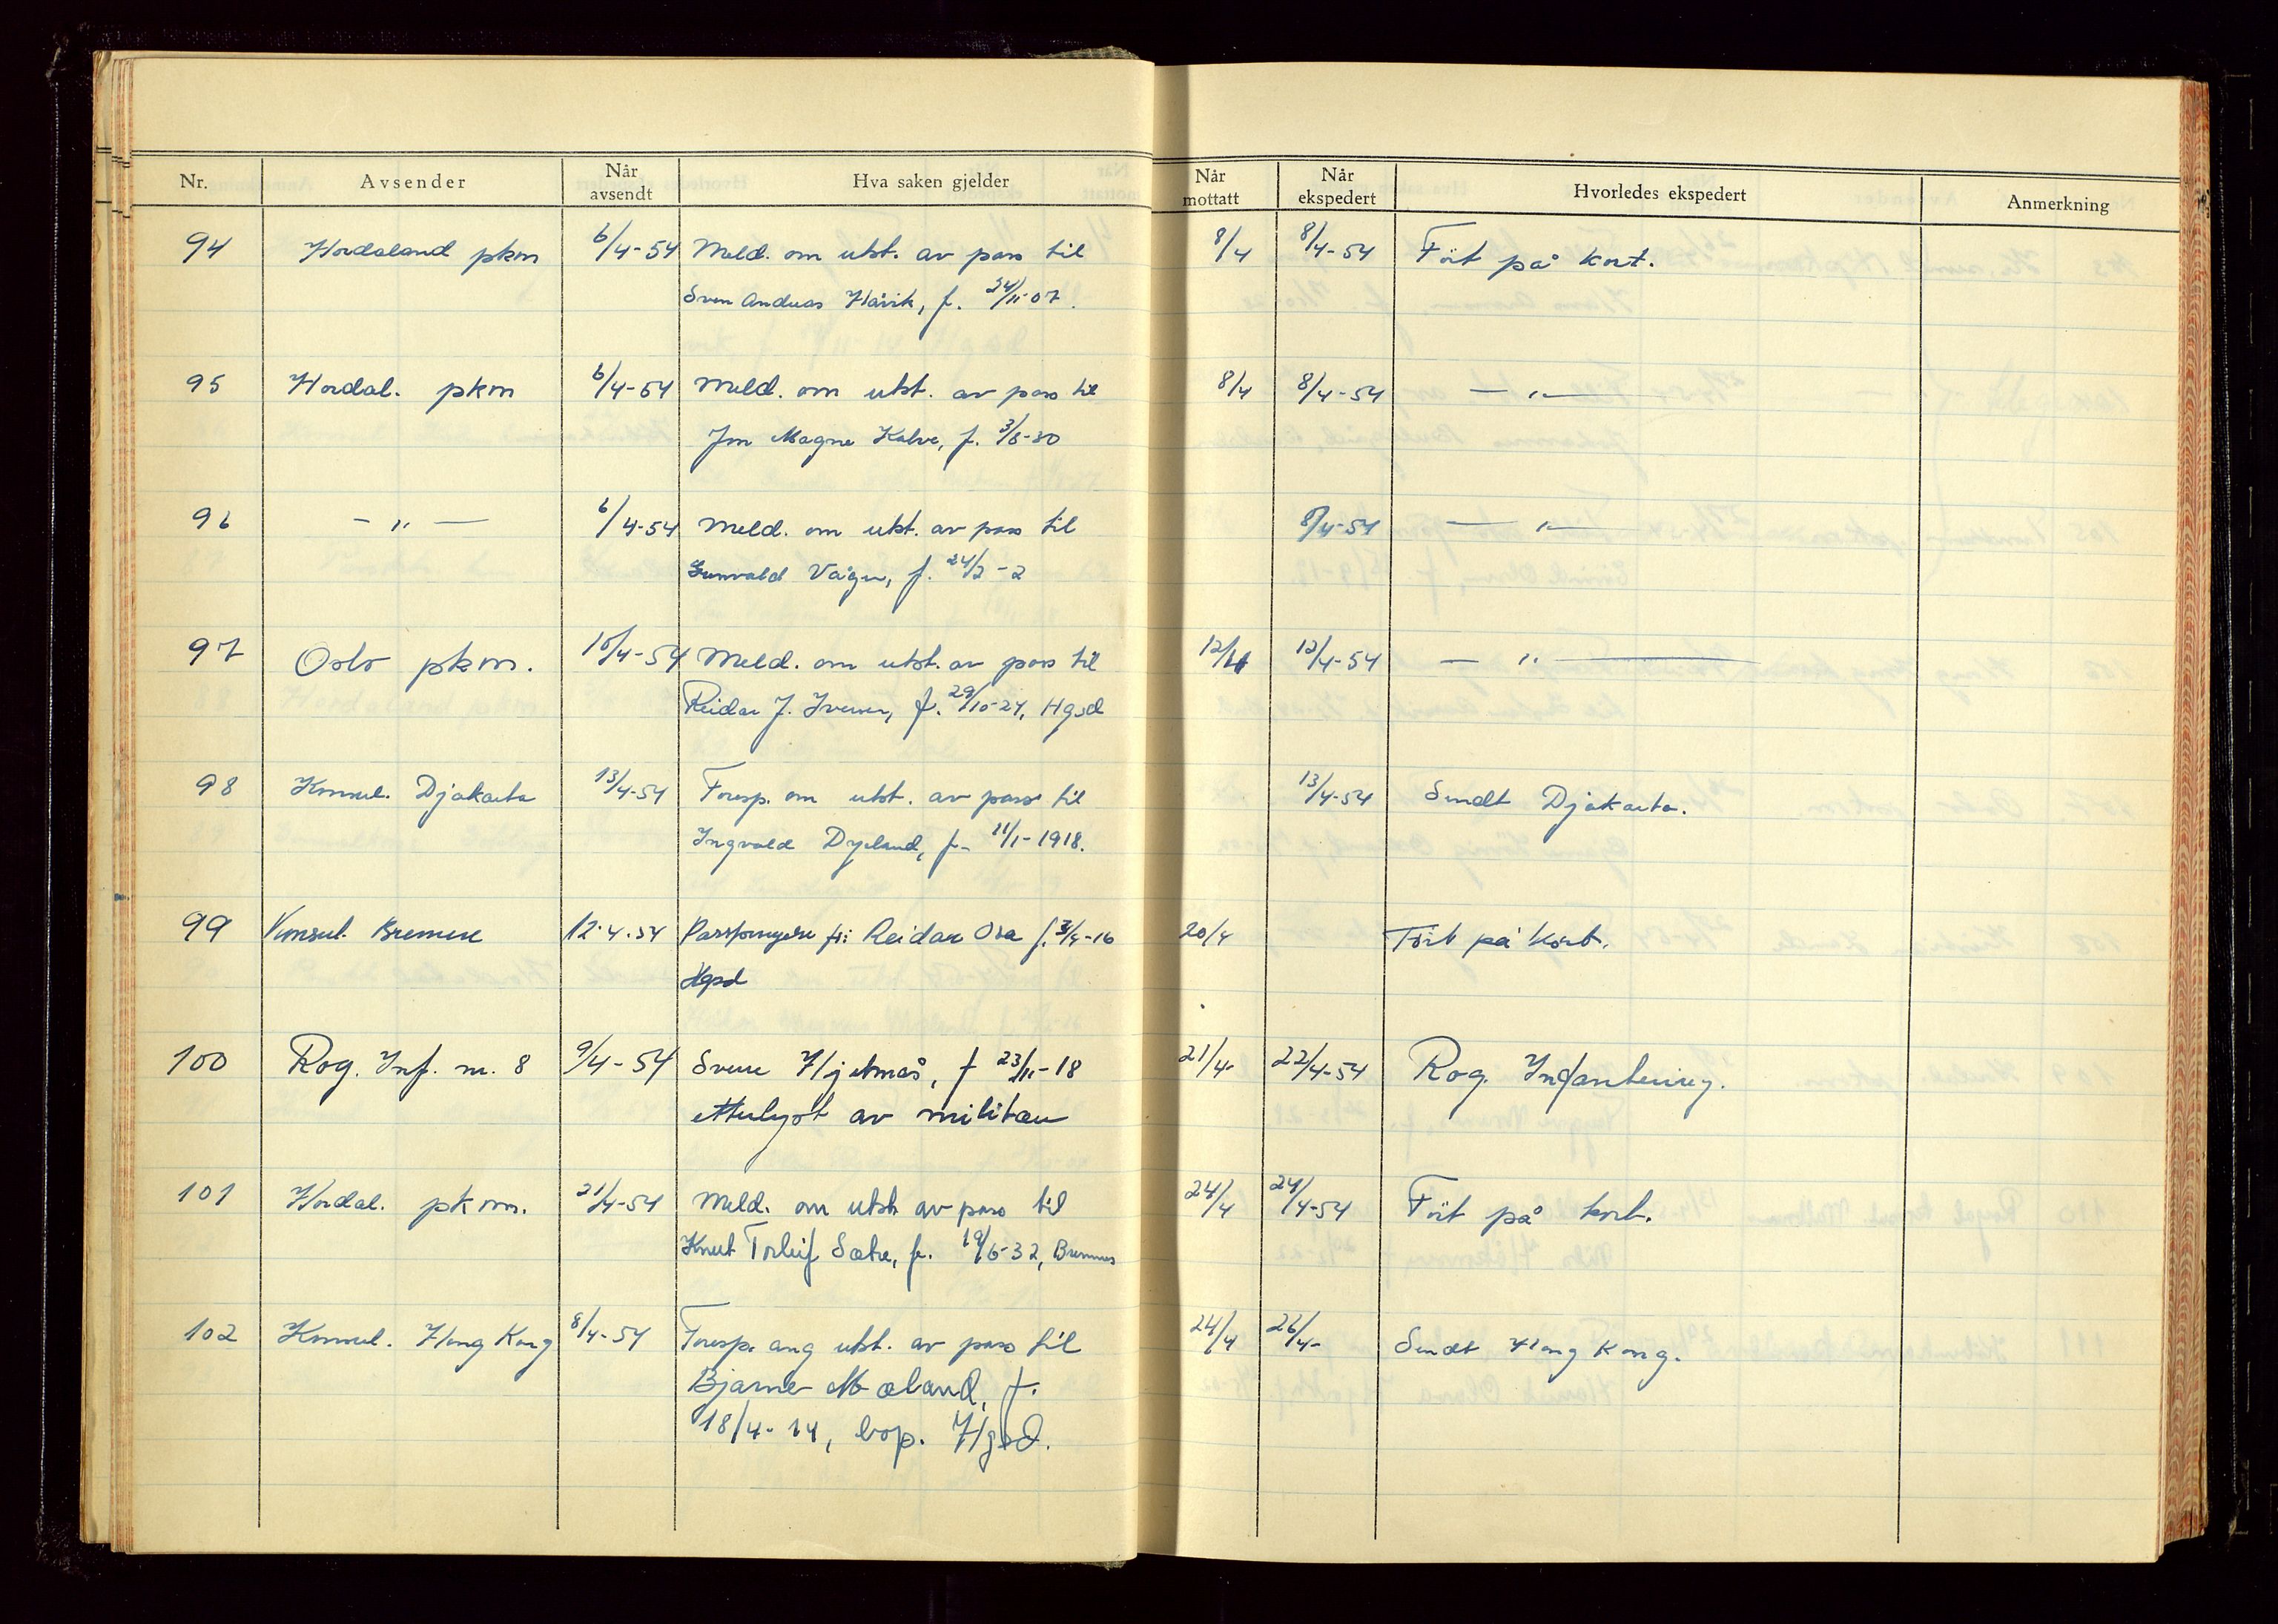 Nr. Avsender Når avsendt Hva saken gjelder Når mottatt Når ekspedert Hvorledes ekspedert Anmerkning
94 Hordaland pkm 6/4-54 Meld. om utst. av pass til 8/4 8/4-54 Ført på kort.
Sven Andreas Håvik, f. 24/11-07.
95 Hordal. pkm 6/4-54 Meld. om utst. av pass til 8/4 8/4-54 — " —
Jon Magne Kalve, f. 3/8-30
96 — " — 6/4-54 Meld. om utst. av pass til 8/4-54 — " —
Gunvald Våge, f. 24/2-2
97 Oslo pkm. 10/4-54 Meld. om utst. av pass til 12/4 12/4-54 — " —
Reidar J. Iversen, f. 29/10-24, Hgsd
98 Konsul. Djakarta 13/4-54 Foresp. om utst. av pass til 13/4-54 Sendt Djakarta.
Ingvald Dyeland, f. 11/1-1918.
99 Konsul. Bremen 12.4.54 Passfornyelse for Reidar Osa f. 3/4-16 20/4 Ført på kort.
Hgsd
100 Rog. Inf. nr. 8 9/4-54 Sverre Hjelmås, f 23/11-18 21/4- 22/4-54 Rog. Infanterireg.
etterlyst av militær
101 Hordal. pkm. 21/4-54 Meld. om utst av pass til 24/4 24/4-54 Ført på kort.
Knut Torleif Sætre, f. 19/6-32, Bremnes
102 Konsul. Hong Kong 8/4-54 Foresp. ang utst. av pass til 24/4 26/4- Sendt Hong Kong.
Bjarne Mæland, f.
18/4-14, bop. Hgsd.